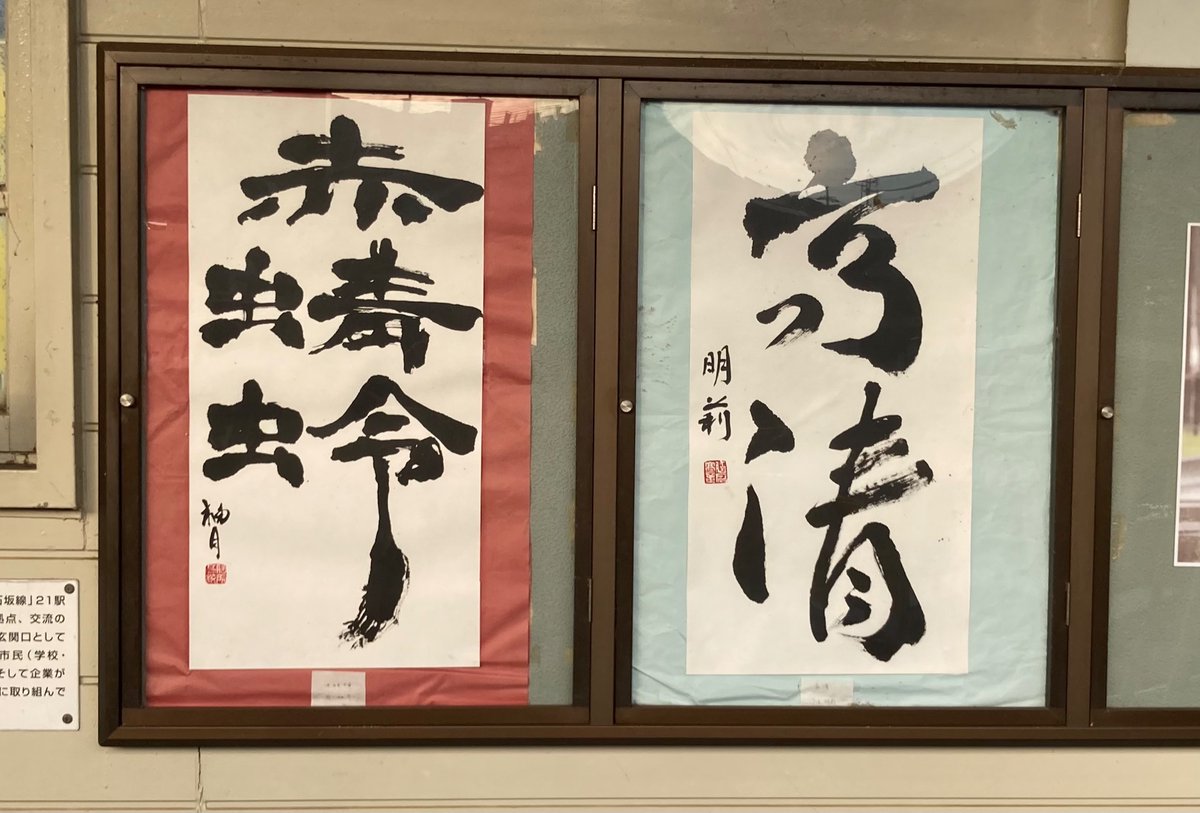 赤蜻蛉
柚月
高清
明莉
坂線」21駅
点、交流の
玄関口として
市民(学校・
そして企業が
に取り組んで